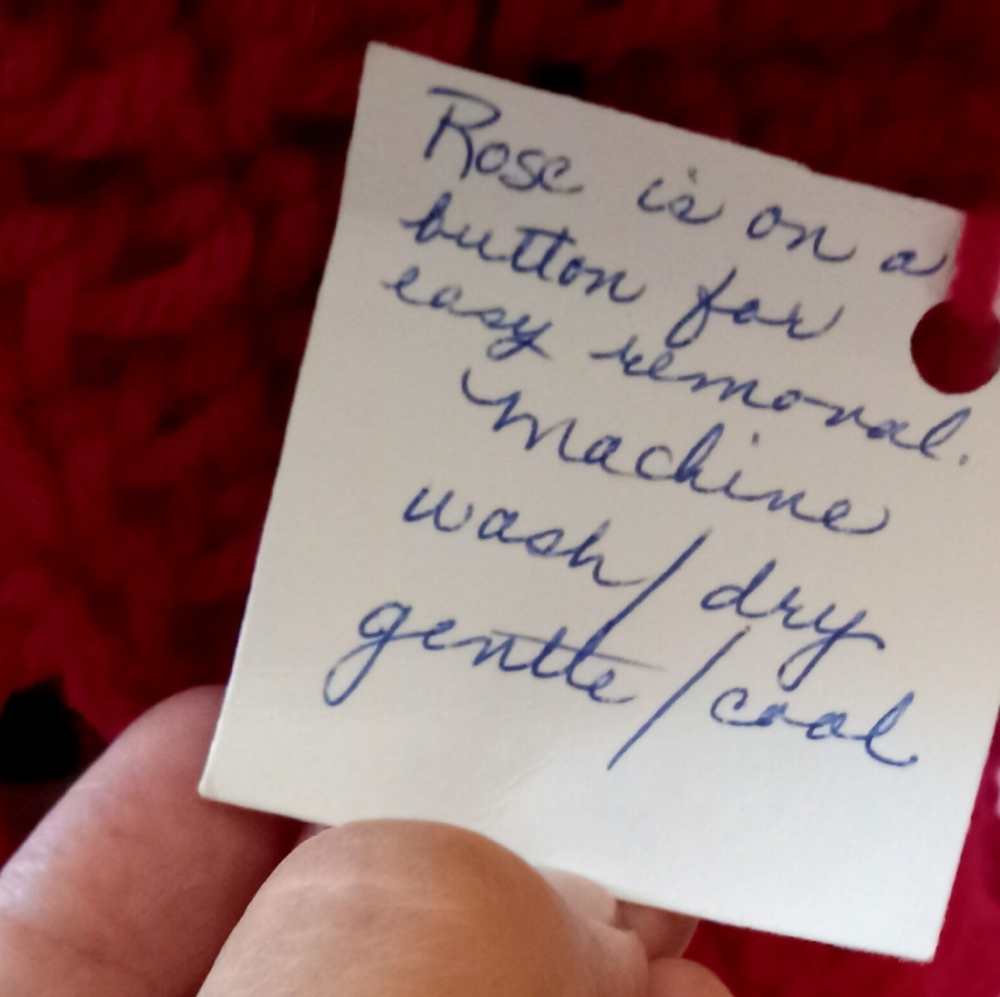 Rose is on a
button for
easy removal.
Machine
wash/dry
gentle/cool